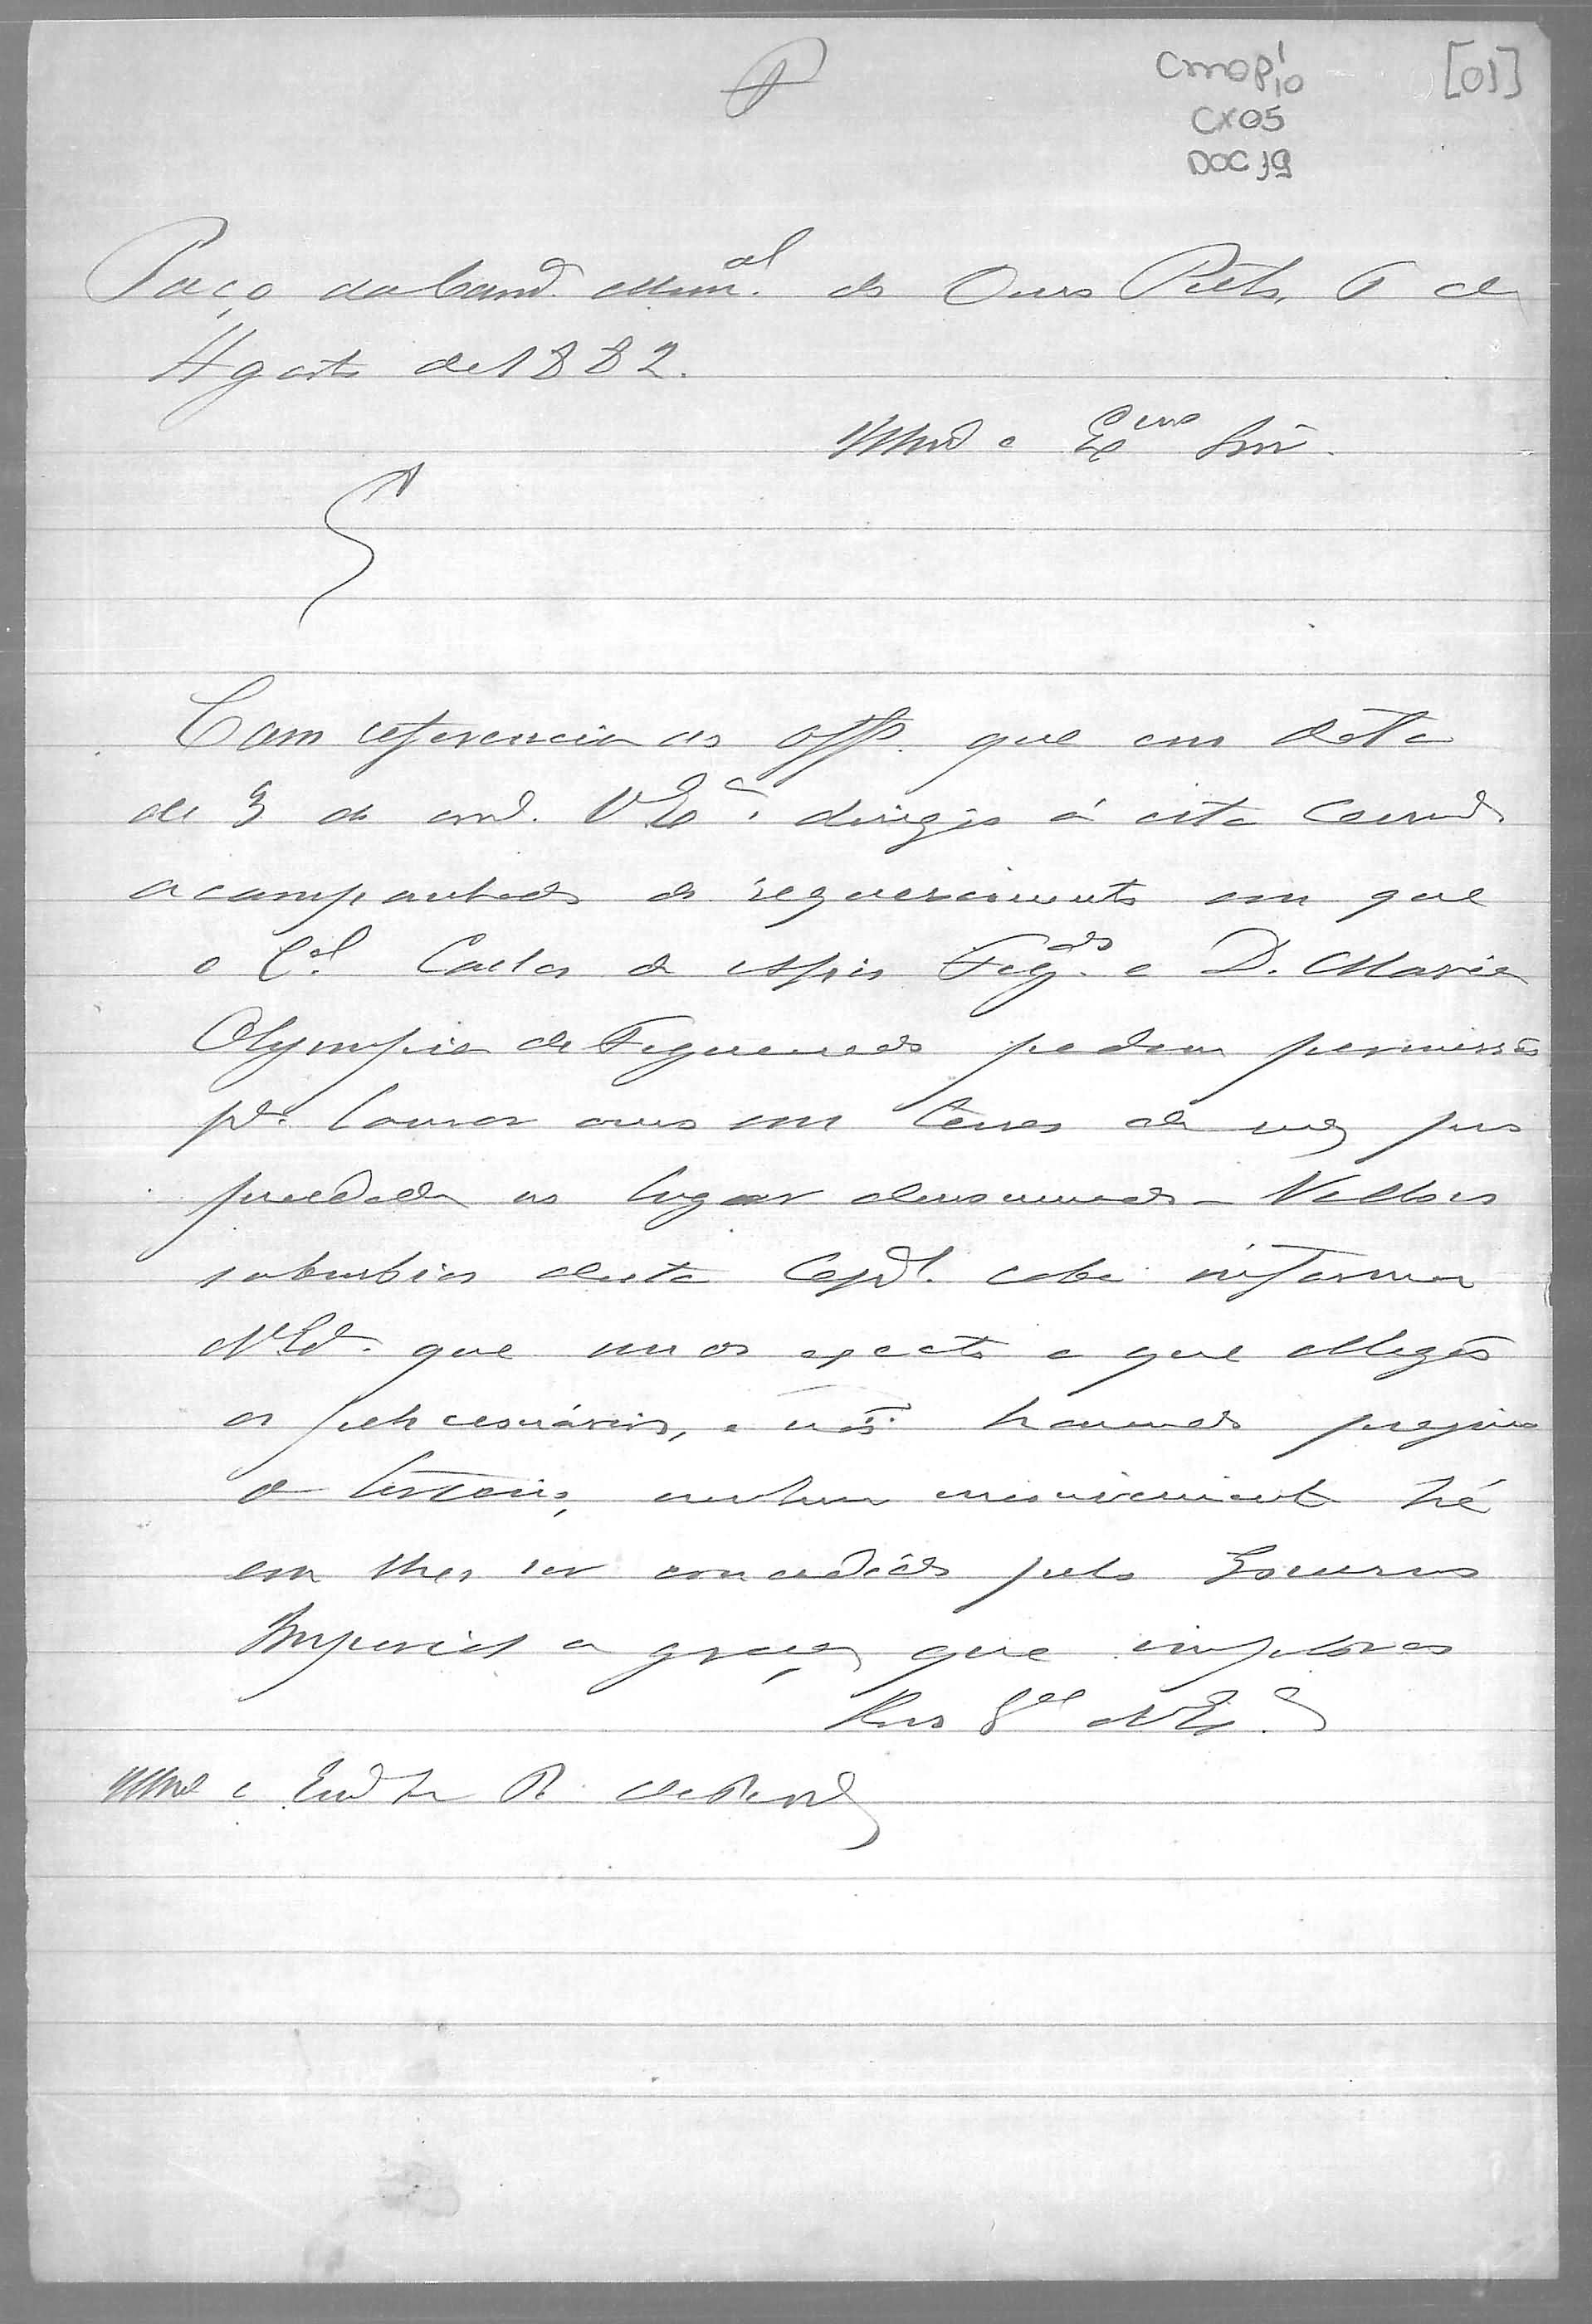 CMOP 10
CX05
DOC 19
[01]
Paço da Camª Munal de Ouro Preto, 6 de
Agosto de 1882.
Illmo e Exmo Snr.
Com referencia ao offº que em data
de 3 do corrº V Excª dirigio á esta Camª
acompanhado do requerimento em que
o Cel Carlos de Assis Figdo e D. Maria
Olympia de Figueiredo pedem permissão
pª lavrar ouro em terras de sua pro
priedade no lugar denominado
suburbios desta Capal cabe informar
a V Exª que sendo exacto o que allegão
os peticionários, e não havendo prejuizo
de terceiro, nenhum inconveniente há
em lhes ser concedido pelo Governo
Imperial a graça que implorão
Ds Gde a V Exª
Illmo e Exmo Sr P. da Provª